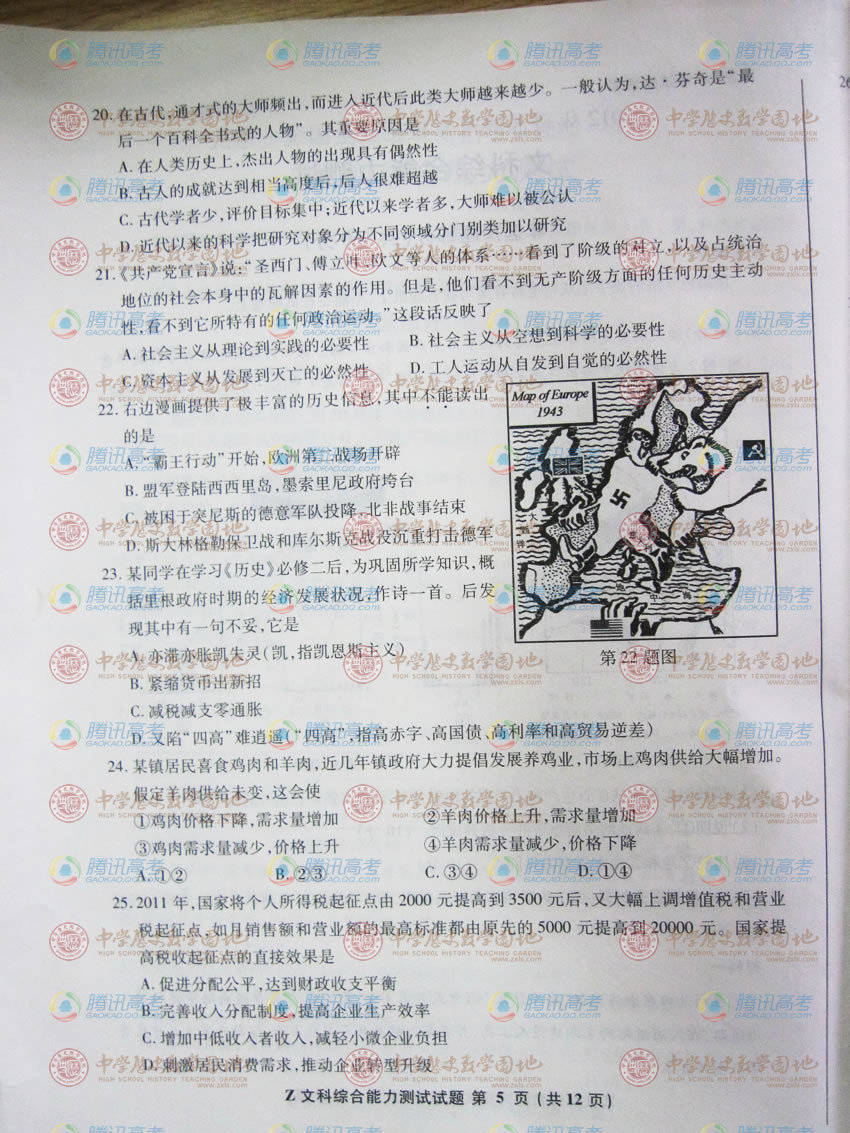 20. 在古代,通才式的大师频出,而进入近代后此类大师越来越少。一般认为,达·芬奇是“最
后一个百科全书式的人物”。其重要原因是
A. 在人类历史上,杰出人物的出现具有偶然性
B. 古人的成就达到相当高度后,后人很难超越
C. 古代学者少,评价目标集中;近代以来学者多,大师难以被公认
D. 近代以来的科学把研究对象分为不同领域分门别类加以研究
21.《共产党宣言》说:“圣西门、傅立叶、欧文等人的体系……看到了阶级的对立,以及占统治
地位的社会本身中的瓦解因素的作用。但是,他们看不到无产阶级方面的任何历史主动
性,看不到它所特有的任何政治运动。”这段话反映了
A. 社会主义从理论到实践的必要性 B. 社会主义从空想到科学的必要性
C. 资本主义从发展到灭亡的必然性 D. 工人运动从自发到自觉的必然性
22. 右边漫画提供了极丰富的历史信息,其中不能读出
的是
A. “霸王行动”开始,欧洲第二战场开辟
B. 盟军登陆西西里岛,墨索里尼政府垮台
C. 被困于突尼斯的德意军队投降,北非战事结束
D. 斯大林格勒保卫战和库尔斯克战役沉重打击德军
Map of Europe
1943
第22题图
23. 某同学在学习《历史》必修二后,为巩固所学知识,概
括里根政府时期的经济发展状况,作诗一首。后发
现其中有一句不妥,它是
A. 亦滞亦胀凯失灵(凯,指凯恩斯主义)
B. 紧缩货币出新招
C. 减税减支零通胀
D. 又陷“四高”难逍遥(“四高”,指高赤字、高国债、高利率和高贸易逆差)
24. 某镇居民喜食鸡肉和羊肉,近几年镇政府大力提倡发展养鸡业,市场上鸡肉供给大幅增加。
假定羊肉供给未变,这会使
①鸡肉价格下降,需求量增加 ②羊肉价格上升,需求量增加
③鸡肉需求量减少,价格上升 ④羊肉需求量减少,价格下降
A. ①② B. ②③ C. ③④ D. ①④
25. 2011年,国家将个人所得税起征点由2000元提高到3500元后,又大幅上调增值税和营业
税起征点,如月销售额和营业额的最高标准都由原先的5000元提高到20000元。国家提
高税收起征点的直接效果是
A. 促进分配公平,达到财政收支平衡
B. 完善收入分配制度,提高企业生产效率
C. 增加中低收入者收入,减轻小微企业负担
D. 刺激居民消费需求,推动企业转型升级
Z文科综合能力测试试题 第5页(共12页)
腾讯高考
GAOKAO.QQ.COM
中学历史教学园地
HIGH SCHOOL HISTORY TEACHING GARDEN
www.zxls.com